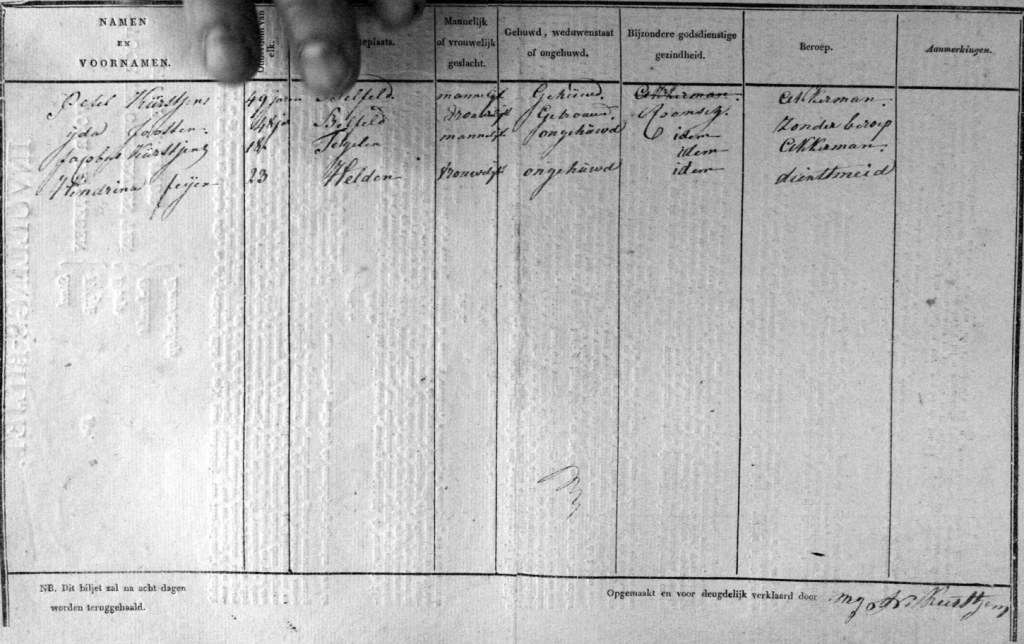 NAMEN EN VOORNAMEN. elk. teplaats. Mannelijk of vrouwelijk geslacht. Gehuwd, weduwenstaat of ongehuwd. Bijzondere godsdienstige gezindheid. Beroep. Aanmerkingen.
Peter Kürstjens 49 jaren Belfeld. mannelijk Gehüwd. Akkerman. Akkerman.
ijda Joosten Belfeld vrouwelijk Getrouwd. Roomsch. Zonder beroep
Jacobus Kürstjens 18 Tegelen mannelijk ongehüwd idem Akkerman.
idem
Hendrina feijen 23 Helden vrouwelijk ongehüwd idem dienstmeid
NB. Dit biljet zal na acht dagen worden teruggehaald.
Opgemaakt en voor deugdelijk verklaard door my Kürstjens